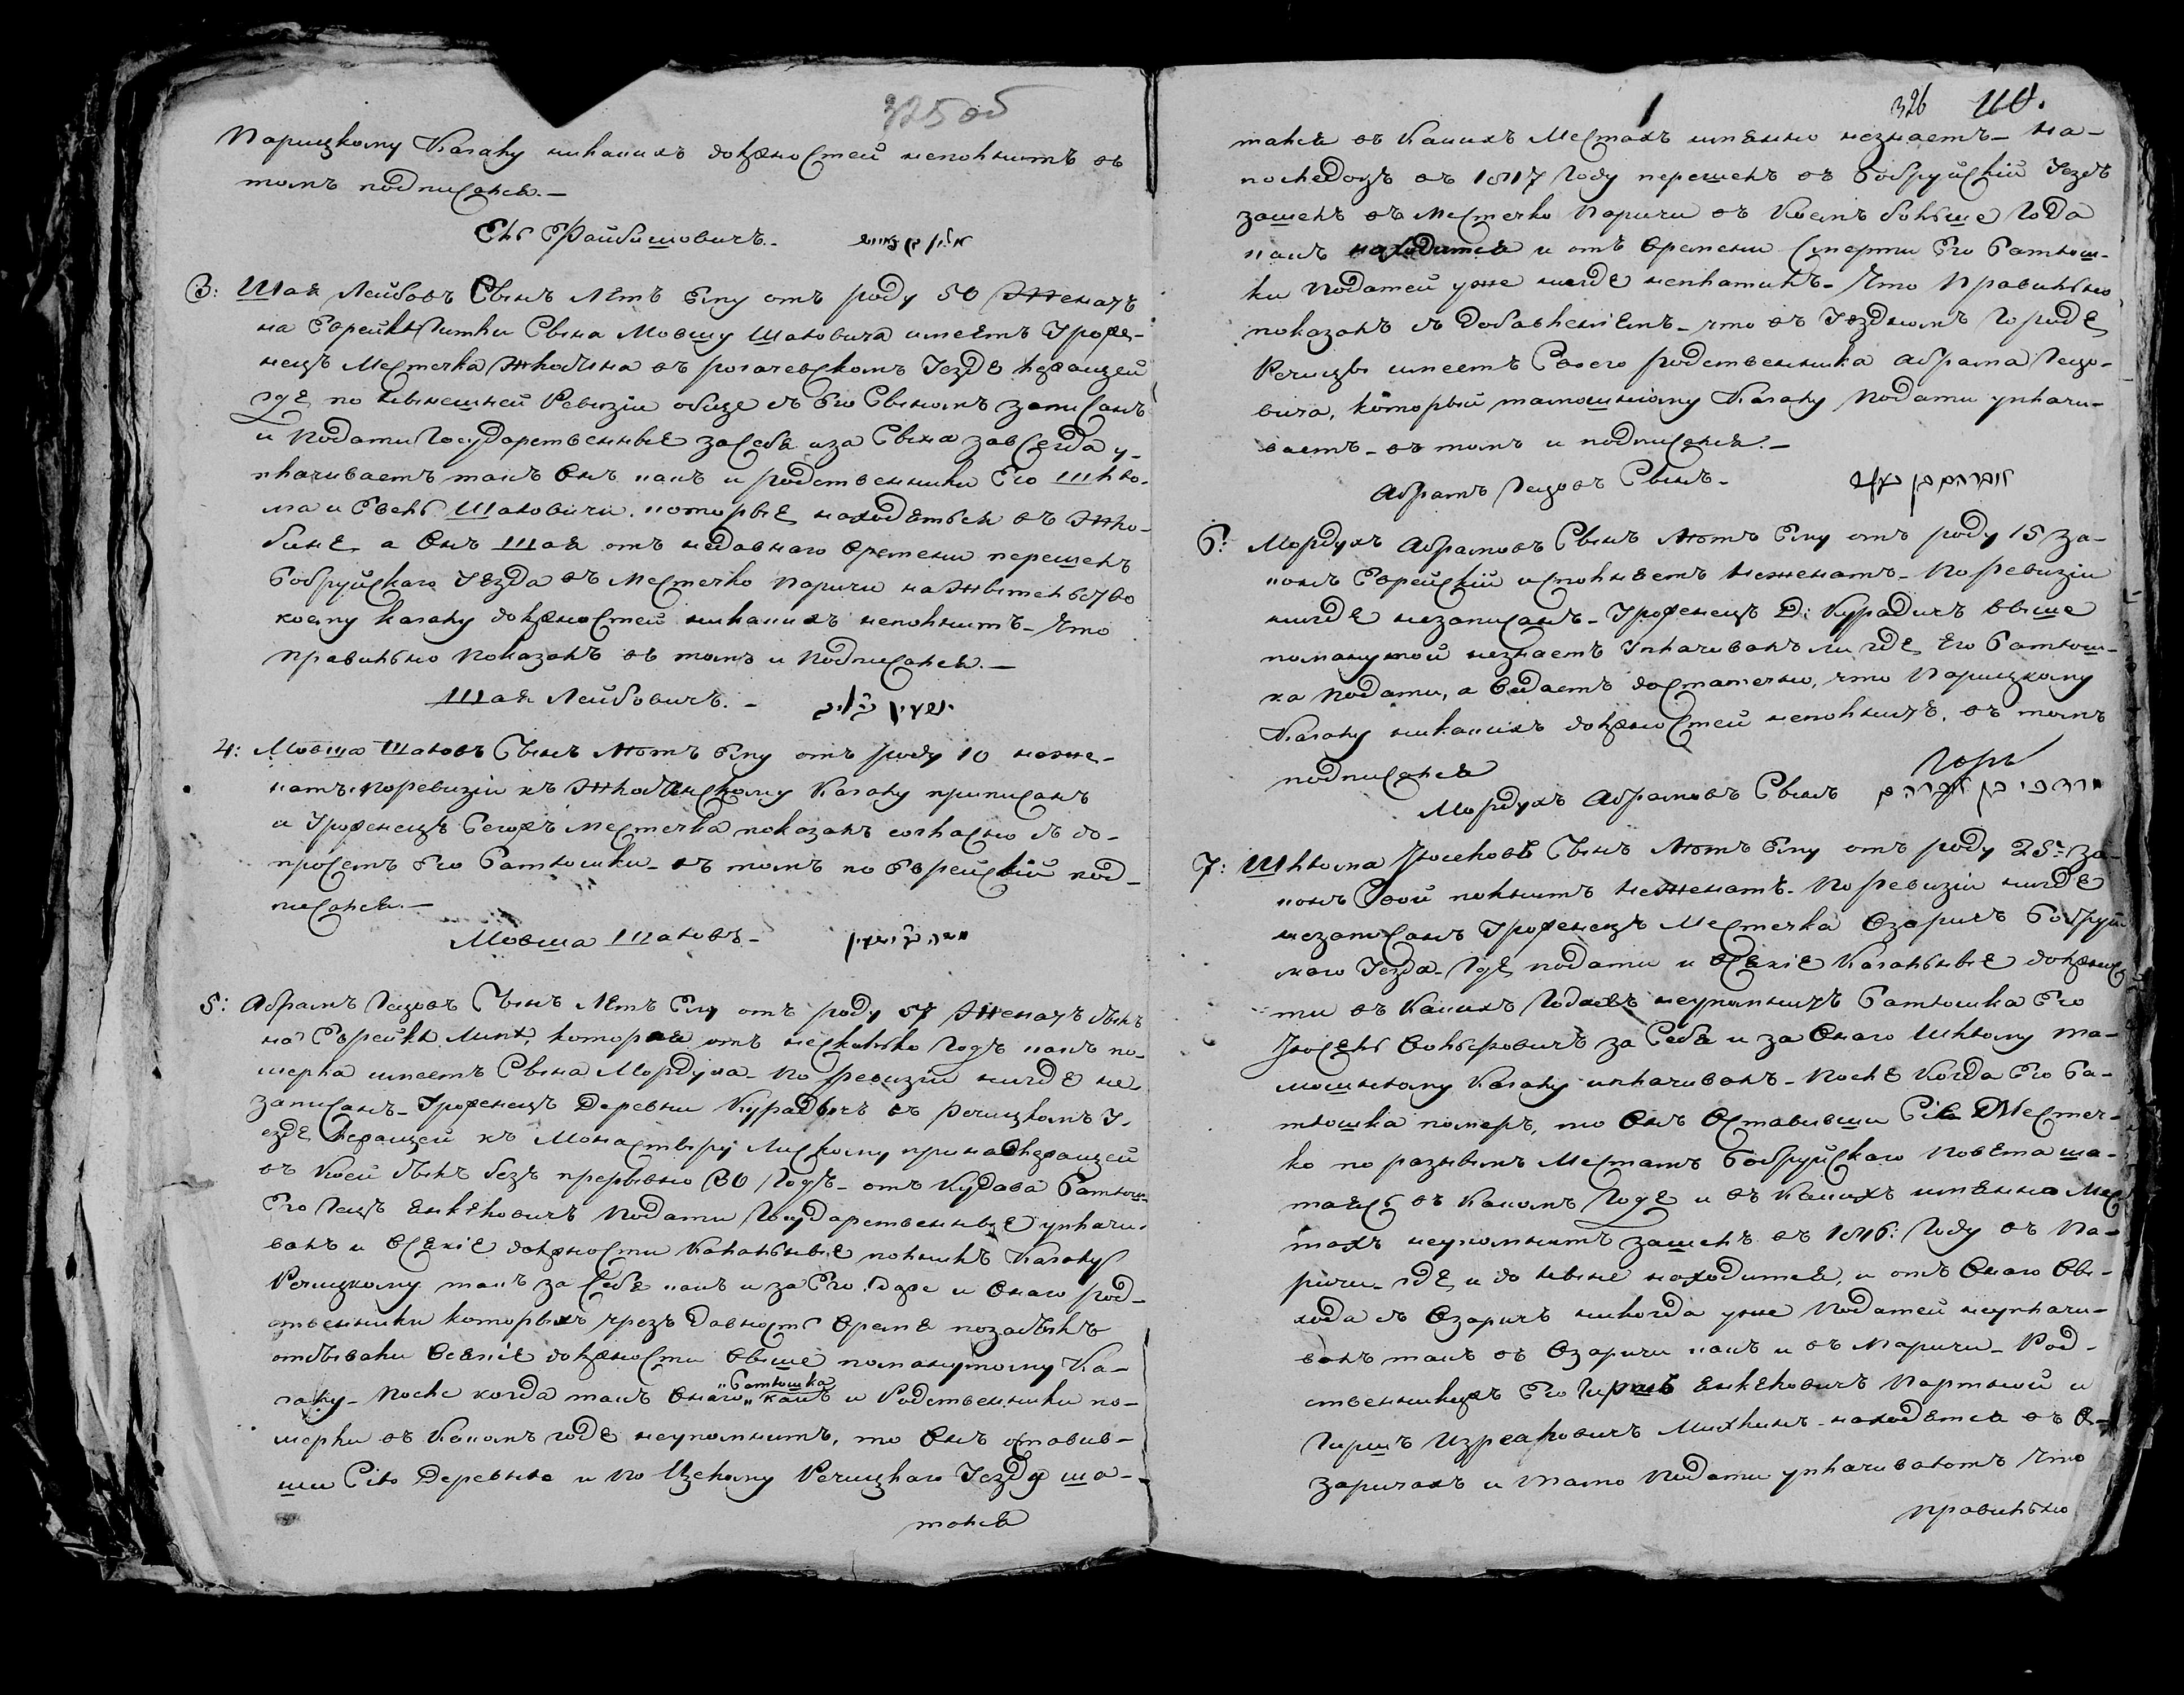 325 об
Парицкому Кагалу никакихъ должностей неполнитъ въ
томъ подписался.—
Ель Файбишовичъ.
3: Шая Лейбовъ Сынъ Летъ ему отъ роду 50 Женатъ
на Еврейке Гитки Сына Мовшу Шаювича имеетъ Уроже-
нецъ Местечка Жлобина въ рогачевскомъ Уезде лежащей
где по нынешней Ревизіи обще съ Его Сыномъ записанъ
и Подати Государственные засебя иза Сына завсегда у-
плачиваетъ такъ Онъ какъ и родственники Его Шлio-
ма и Шаювичи. которые находятся въ Жло-
бине. а Онъ Шая отъ недавнаго Времени перешелъ
Бобруйскаго Уезда въ Местечко Паричи на Жытельство
коему кагалу должностей никакихъ неполнитъ - Что
правильно показалъ въ томъ и Подписался.—
Шая Лейбовичъ. -
4: Мовша Шаювъ Сынъ Летъ ему отъ роду 10 неже-
натъ. поревизіи къ Жлобинскому Кагалу приписанъ
и Уроженецъ Сегожъ местечка показалъ согласно съ до-
просомъ Его Батюшки - въ томъ по Еврейскій под-
писался.—
Мовша Шаювъ-
5: Абрамъ Гецовъ Сынъ Летъ Ему отъ роду 57 Женатъ былъ
на Еврейке, которая отъ несколько Годъ какъ по-
мерла имеетъ Сына Мордуха - по ревизіи нигде не-
записанъ - Уроженецъ Деревни Курадичъ въ речицкомъ У-
езде Лежащей къ Монастыру принадлежащей
въ Коей былъ безъ прерывно 30 Годъ - отъ Кудава Батюшка
Его Гецъ Янкелювичъ Подати Государственные уплачи-
валъ и Всякіе должности Кагальные полнилъ Кагалу
Речицкому такъ за Себе какъ и за Его. даже и Онаго род-
ственники которыхъ чрезъ Давность Время позабылъ
отбывали Всякіе должности Выше помянутому Ка-
галу - После когда такъ Онаго „Батюшка„ какъ и Родственники по-
мерли въ Какомъ годе неупомнитъ, то Онъ оставив-
ши Сію Деревню и по Целому Речицкаго Уезду ша-
тался
326
тался въ Какихъ Местахъ имянно незнаетъ - на-
последокъ въ 1817 Году перешелъ въ Бобруйскій Уездъ
зашелъ въ местечко Паричи въ Коемъ больше Года
какъ находится и отъ Времени Смерти Его Батюш-
ки Податей уже нигде неплатилъ - Что Правильно
показалъ съ Добавленіемъ - что въ Уездномъ Городе
Речицы имеетъ Своего родственника Абрама Гецо-
вича, который тамошнему Кагалу Подати уплачи-
ваетъ - въ томъ и подписался.—
Абрамъ Гецовъ Сынъ -
אברהם בן געץ
6: Мордухъ Абрамовъ Сынъ Летъ Ему отъ роду 15 за-
конъ Еврейскій исполняетъ неженатъ - Поревизіи
нигде незаписанъ - Уроженецъ Д: Курадичъ Выше
помянутой незнаетъ Уплачивалъ ли где Его Батюш-
ка Подати, а Ведаетъ достаточно, что Парицкому
Кагалу никакихъ должностей неполнилъ. въ томъ
подписался
Мордухъ Абрамовъ Сынъ
מרדכי בן אברהם
7: Шліома Іосеповъ Сынъ Летъ Ему отъ роду 25: за-
конъ Свой полнитъ неженатъ - Поревизіи нигде
незаписанъ Уроженецъ Местечка Озаричъ Бобруй-
скаго Уезда - Где подати и Всякіе Кагальные должнос-
ти въ Какихъ Годахъ неупомнитъ Батюшка Его
Іосель за Себя и за Онаго Шліому та-
мошнему Кагалу уплачивалъ - После Когда Его Ба-
тюшка померъ, то Онъ Оставивши Сіе Местеч-
ко по разнымъ Местамъ Бобруйскаго Повета ша-
таясь въ Какомъ Годе и въ Какихъ имянно Мес-
тахъ неупомнитъ зашелъ въ 1816: Году въ Па-
ричи - где и до ныне находится, и отъ Онаго Вы-
хода съ Озаричъ никогда уже Податей неуплачи-
валъ такъ въ Озаричи какъ и въ Паричи - Род-
ственникъ Его Гиршъ Янкелювичъ Партной и
Гиршъ Израилювичъ находятся въ О-
заричахъ и тамо Подати уплачиваютъ Что
правильно